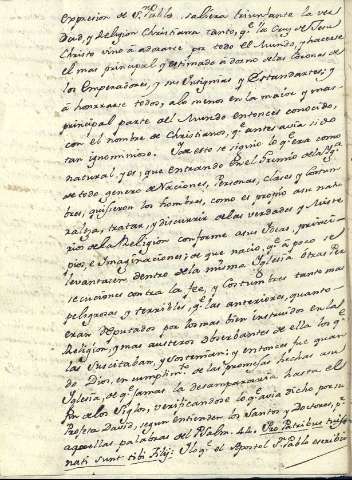 Expresion de Sn. Pablo, saliera triunfante la ver
dad, y Religion Christiana tanto, qe. la Cruz de Jesu
Christo vino á adorarse por todo el Mundo, y hacerse
el mas principal, y estimado adorno de las Coronas de
los Emperadores, y sus Insignias y Estandartes; y
á honrrarse todos, alo menos en la maior y mas
principal parte del Mundo entonces conocido,
con el nombre de Christianos, qe. antes avia sido
tan ignominioso. Y de esto se siguio lo qe. era como
natural, y es, que entrando en el Gremio de la Yga.
de todo genero de Naciones, Personas, Clases y Costum
bres, quisieron los hombres, como es propio a su natu
raleza, tratar, y discurrir de las verdades y Miste
rios de la Religion conforme a sus Ideas, princi
pios, e Imaginaciones; de que nació, qe. á poco se
levantasen dentro de la misma Iglesia otras Per
secuciones contra la fee, y Costumbres tanto mas
peligrosas y terribles, qe. las anteriores, quanto
eran Reputados por los mas bien instruidos en la
Religion, y mas austeros observantes de ella los qe.
las Suscitaban, y sostenian; y entonces fue quan
do Dios, en cumplimto. de las promesas hechas a su
Iglesia, de qe. jamas la desampararia hasta el
fin de los Siglos, verificandose lo qe. avia dicho por su
Profeta David, segun entienden los Santos y Doctores, pr.
aquellas palabras del Psalm. 44. Pro Patribus tuis
nati sunt tibi Filij: Y lo qe. el Apostol Sn. Pablo escribio